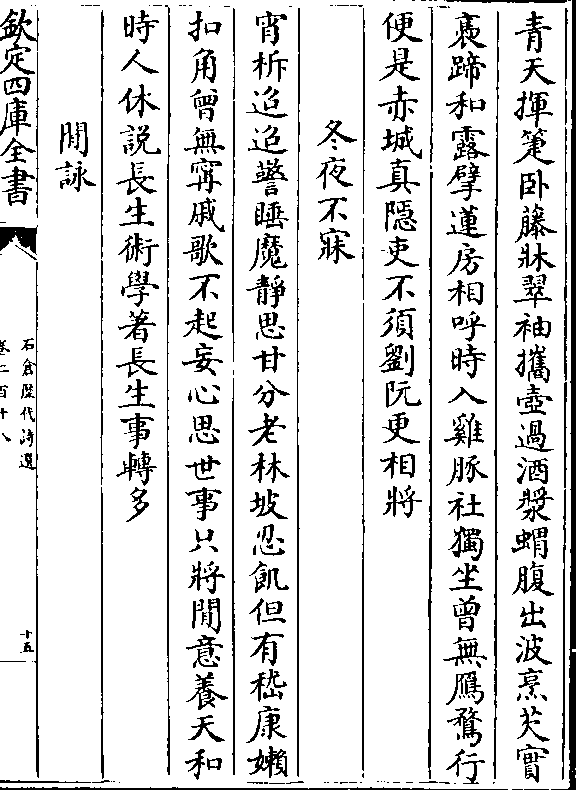 青天揮箑卧藤牀翠袖攜壺過酒漿蝟腹出波烹芡實
褭蹄和露擘蓮房相呼時入雞豚社獨坐曾無鴈鶩行
便是赤城真隱吏不須劉阮更相將
冬夜不寐
宵柝迢迢警睡魔靜思甘分老林坡忍飢但有嵇康嬾
扣角曾無甯戚歌不起妄心思世事只將閒意養天和
時人休説長生術學著長生事轉多
閒詠
欽定四庫全書
石倉歷代詩選
卷二百十八
十五